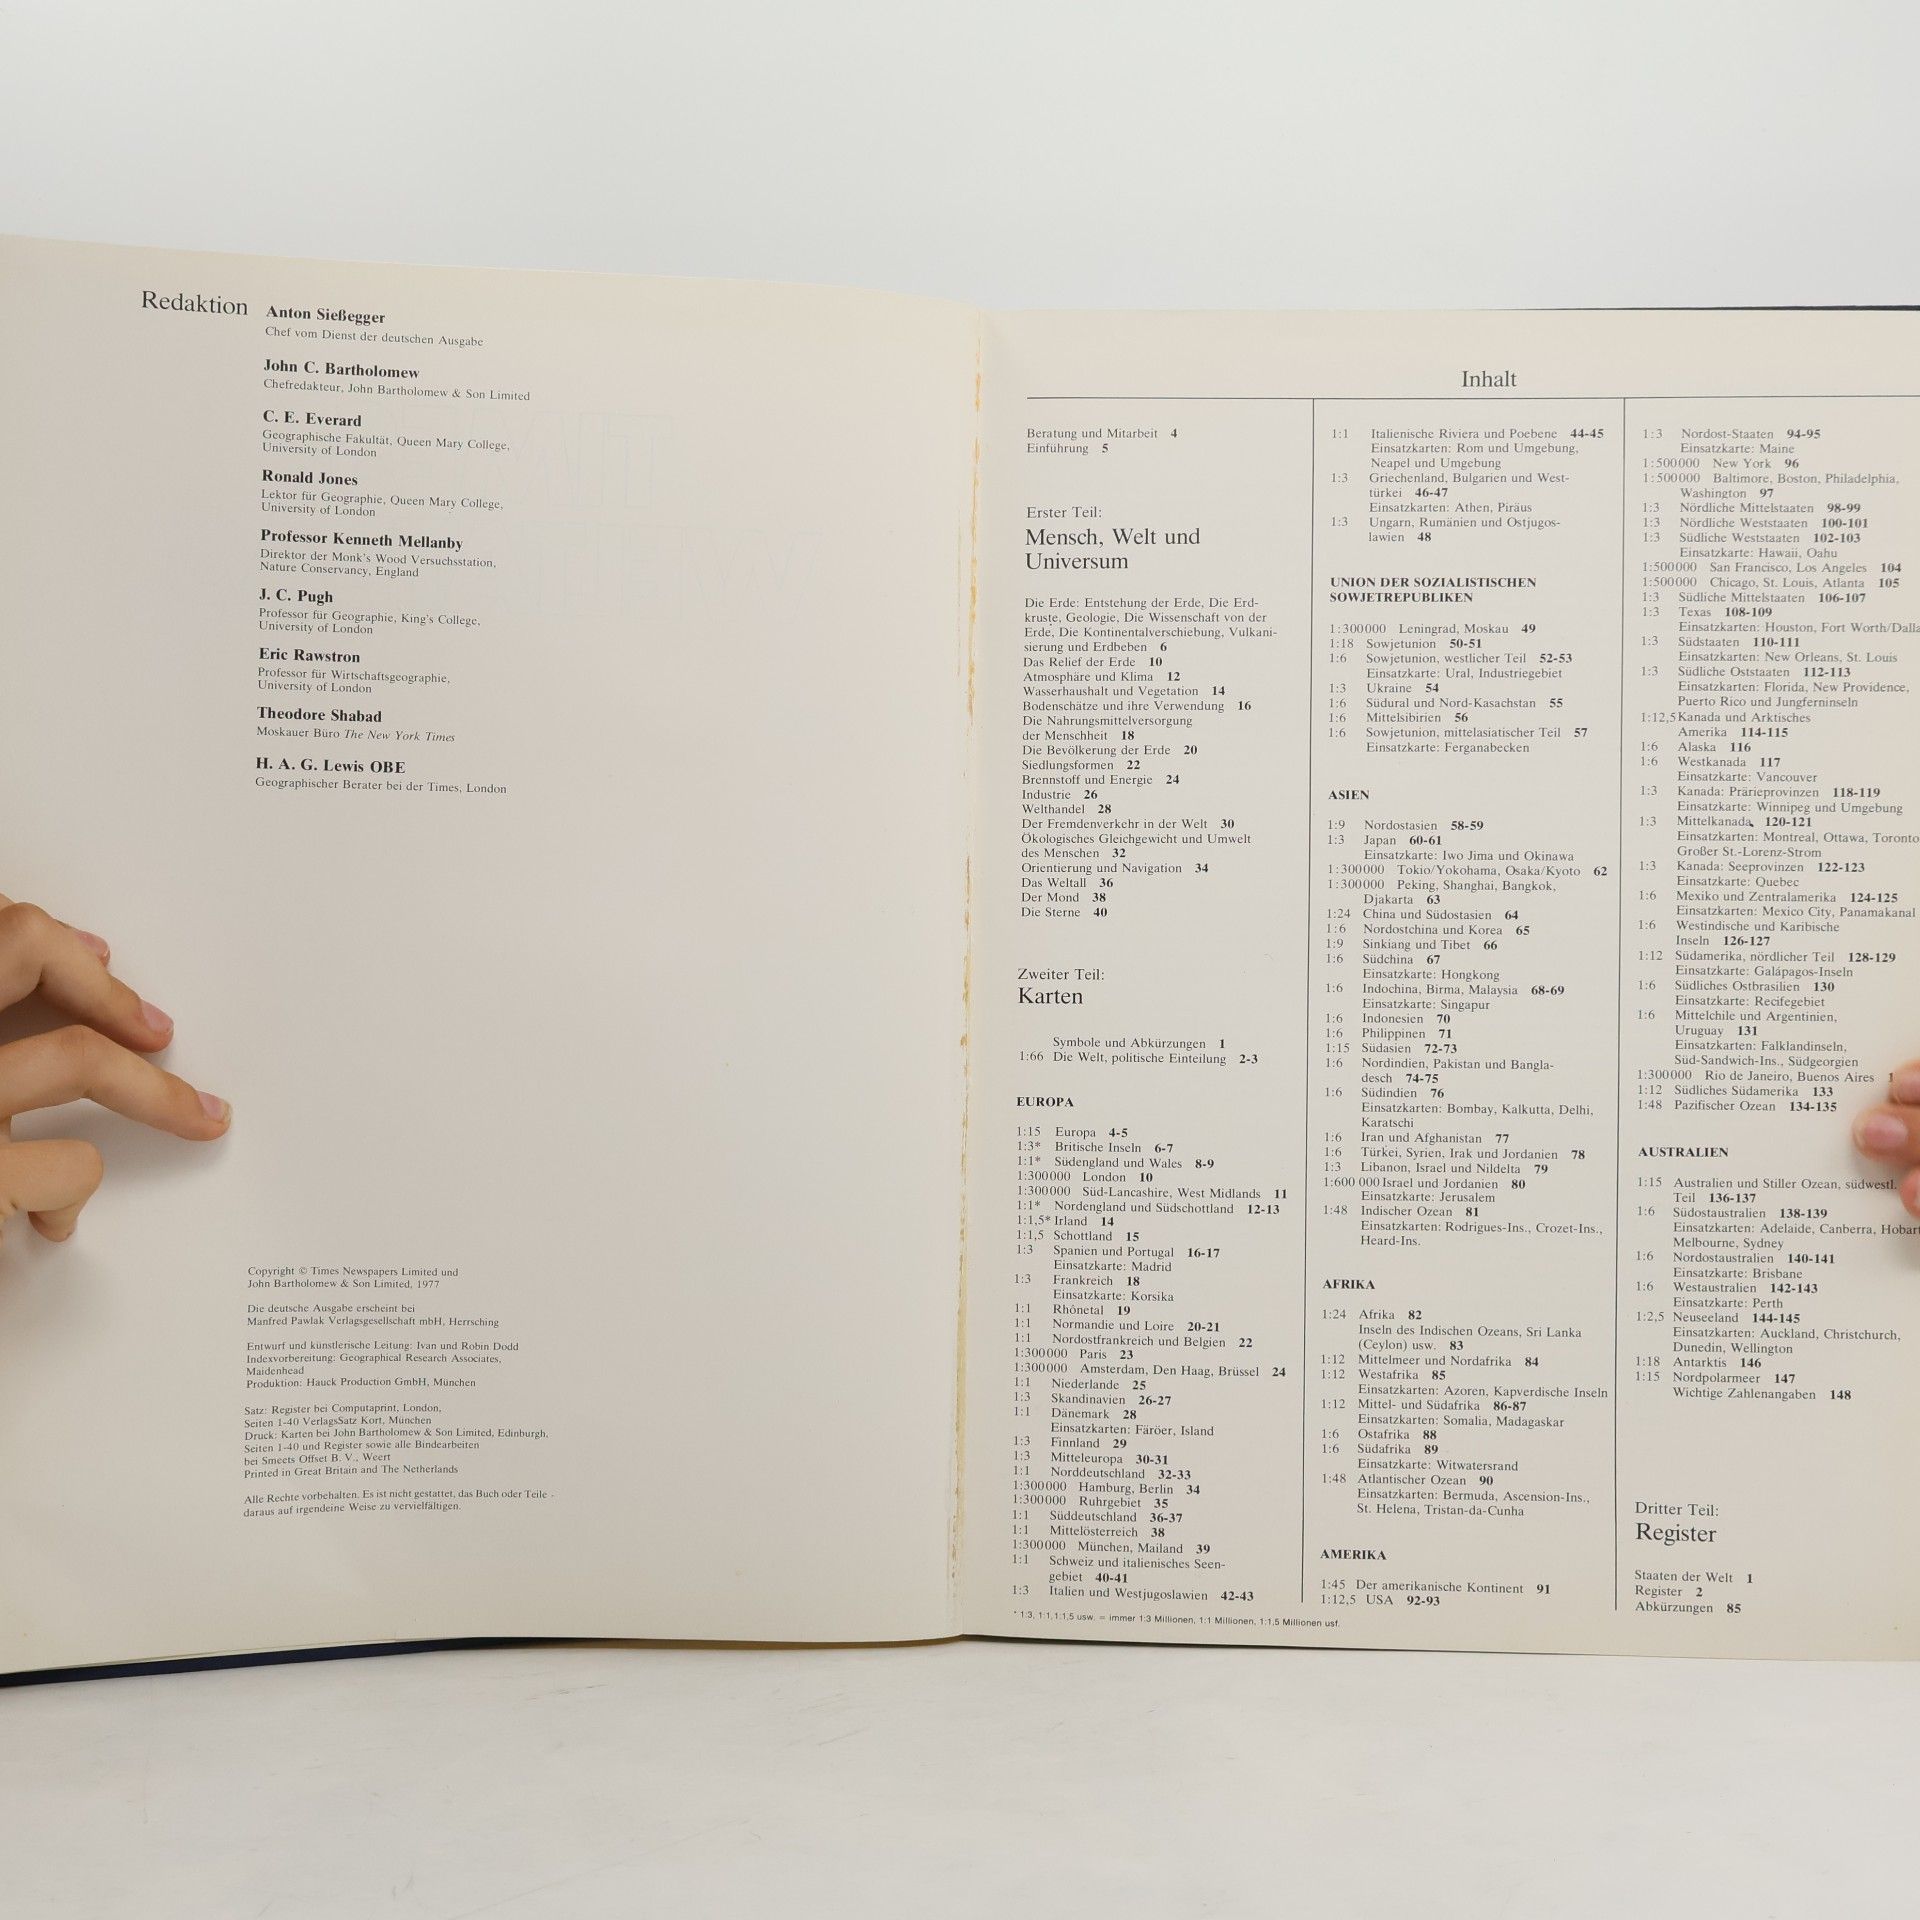 Redaktion
Anton Sießegger
Chef vom Dienst der deutschen Ausgabe
John C. Bartholomew
Chefredakteur, John Bartholomew & Son Limited
C. E. Everard
Geographische Fakultät, Queen Mary College,
University of London
Ronald Jones
Lektor für Geographie, Queen Mary College,
University of London
Professor Kenneth Mellanby
Direktor der Monk's Wood Versuchsstation,
Nature Conservancy, England
J. C. Pugh
Professor für Geographie, King's College,
University of London
Eric Rawstron
Professor für Wirtschaftsgeographie,
University of London
Theodore Shabad
Moskauer Büro The New York Times
H. A. G. Lewis OBE
Geographischer Berater bei der Times, London
Copyright © Times Newspapers Limited und
John Bartholomew & Son Limited, 1977
Die deutsche Ausgabe erscheint bei
Manfred Pawlak Verlagsgesellschaft mbH, Herrsching
Entwurf und künstlerische Leitung: Ivan und Robin Dodd
Indexvorbereitung: Geographical Research Associates,
Maidenhead
Produktion: Hauck Production GmbH, München
Satz: Register bei Computaprint, London,
Seiten 1-40 VerlagsSatz Kort, München
Druck: Karten bei John Bartholomew & Son Limited, Edinburgh,
Seiten 1-40 und Register sowie alle Bindearbeiten
bei Smeets Offset B. V., Weert
Printed in Great Britain and The Netherlands
Alle Rechte vorbehalten. Es ist nicht gestattet, das Buch oder Teile
daraus auf irgendeine Weise zu vervielfältigen.
Inhalt
Beratung und Mitarbeit 4
Einführung 5
Erster Teil:
Mensch, Welt und
Universum
Die Erde: Entstehung der Erde, Die Erd-
kruste, Geologie, Die Wissenschaft von der
Erde, Die Kontinentalverschiebung, Vulkani-
sierung und Erdbeben 6
Das Relief der Erde 10
Atmosphäre und Klima 12
Wasserhaushalt und Vegetation 14
Bodenschätze und ihre Verwendung 16
Die Nahrungsmittelversorgung
der Menschheit 18
Die Bevölkerung der Erde 20
Siedlungsformen 22
Brennstoff und Energie 24
Industrie 26
Welthandel 28
Der Fremdenverkehr in der Welt 30
Ökologisches Gleichgewicht und Umwelt
des Menschen 32
Orientierung und Navigation 34
Das Weltall 36
Der Mond 38
Die Sterne 40
Zweiter Teil:
Karten
Symbole und Abkürzungen 1
1:66 Die Welt, politische Einteilung 2-3
EUROPA
1:15 Europa 4-5
1:3* Britische Inseln 6-7
1:1* Südengland und Wales 8-9
1:300000 London 10
1:300000 Süd-Lancashire, West Midlands 11
1:1* Nordengland und Südschottland 12-13
1:1,5* Irland 14
1:1,5 Schottland 15
1:3 Spanien und Portugal 16-17
Einsatzkarte: Madrid
1:3 Frankreich 18
Einsatzkarte: Korsika
1:1 Rhônetal 19
1:1 Normandie und Loire 20-21
1:1 Nordostfrankreich und Belgien 22
1:300000 Paris 23
1:300000 Amsterdam, Den Haag, Brüssel 24
1:1 Niederlande 25
1:3 Skandinavien 26-27
1:1 Dänemark 28
Einsatzkarten: Färöer, Island
1:3 Finnland 29
1:3 Mitteleuropa 30-31
1:1 Norddeutschland 32-33
1:300000 Hamburg, Berlin 34
1:300000 Ruhrgebiet 35
1:1 Süddeutschland 36-37
1:1 Mittelösterreich 38
1:300000 München, Mailand 39
1:1 Schweiz und italienisches Seen-
gebiet 40-41
1:3 Italien und Westjugoslawien 42-43
* 1:3, 1:1, 1:1,5 usw. = immer 1:3 Millionen, 1:1 Millionen, 1:1,5 Millionen usf.
1:1 Italienische Riviera und Poebene 44-45
Einsatzkarten: Rom und Umgebung,
Neapel und Umgebung
1:3 Griechenland, Bulgarien und West-
türkei 46-47
Einsatzkarten: Athen, Piräus
1:3 Ungarn, Rumänien und Ostjugos-
lawien 48
UNION DER SOZIALISTISCHEN
SOWJETREPUBLIKEN
1:300000 Leningrad, Moskau 49
1:18 Sowjetunion 50-51
1:6 Sowjetunion, westlicher Teil 52-53
Einsatzkarte: Ural, Industriegebiet
1:3 Ukraine 54
1:6 Südural und Nord-Kasachstan 55
1:6 Mittelsibirien 56
1:6 Sowjetunion, mittelasiatischer Teil 57
Einsatzkarte: Ferganabecken
ASIEN
1:9 Nordostasien 58-59
1:3 Japan 60-61
Einsatzkarte: Iwo Jima und Okinawa
1:300000 Tokio/Yokohama, Osaka/Kyoto 62
1:300000 Peking, Shanghai, Bangkok,
Djakarta 63
1:24 China und Südostasien 64
1:6 Nordostchina und Korea 65
1:9 Sinkiang und Tibet 66
1:6 Südchina 67
Einsatzkarte: Hongkong
1:6 Indochina, Birma, Malaysia 68-69
Einsatzkarte: Singapur
1:6 Indonesien 70
1:6 Philippinen 71
1:15 Südasien 72-73
1:6 Nordindien, Pakistan und Bangla-
desch 74-75
1:6 Südindien 76
Einsatzkarten: Bombay, Kalkutta, Delhi,
Karatschi
1:6 Iran und Afghanistan 77
1:6 Türkei, Syrien, Irak und Jordanien 78
1:3 Libanon, Israel und Nildelta 79
1:600 000 Israel und Jordanien 80
Einsatzkarte: Jerusalem
1:48 Indischer Ozean 81
Einsatzkarten: Rodrigues-Ins., Crozet-Ins.,
Heard-Ins.
AFRIKA
1:24 Afrika 82
Inseln des Indischen Ozeans, Sri Lanka
(Ceylon) usw. 83
1:12 Mittelmeer und Nordafrika 84
1:12 Westafrika 85
Einsatzkarten: Azoren, Kapverdische Inseln
1:12 Mittel- und Südafrika 86-87
Einsatzkarten: Somalia, Madagaskar
1:6 Ostafrika 88
1:6 Südafrika 89
Einsatzkarte: Witwatersrand
1:48 Atlantischer Ozean 90
Einsatzkarten: Bermuda, Ascension-Ins.,
St. Helena, Tristan-da-Cunha
AMERIKA
1:45 Der amerikanische Kontinent 91
1:12,5 USA 92-93
1:3 Nordost-Staaten 94-95
Einsatzkarte: Maine
1:500000 New York 96
1:500000 Baltimore, Boston, Philadelphia,
Washington 97
1:3 Nördliche Mittelstaaten 98-99
1:3 Nördliche Weststaaten 100-101
1:3 Südliche Weststaaten 102-103
Einsatzkarte: Hawaii, Oahu
1:500000 San Francisco, Los Angeles 104
1:500000 Chicago, St. Louis, Atlanta 105
1:3 Südliche Mittelstaaten 106-107
1:3 Texas 108-109
Einsatzkarten: Houston, Fort Worth/Dalla
1:3 Südstaaten 110-111
Einsatzkarten: New Orleans, St. Louis
1:3 Südliche Oststaaten 112-113
Einsatzkarten: Florida, New Providence,
Puerto Rico und Jungferninseln
1:12,5 Kanada und Arktisches
Amerika 114-115
1:6 Alaska 116
1:6 Westkanada 117
Einsatzkarte: Vancouver
1:3 Kanada: Prärieprovinzen 118-119
Einsatzkarte: Winnipeg und Umgebung
1:3 Mittelkanada 120-121
Einsatzkarten: Montreal, Ottawa, Toronto
Großer St.-Lorenz-Strom
1:3 Kanada: Seeprovinzen 122-123
Einsatzkarte: Quebec
1:6 Mexiko und Zentralamerika 124-125
Einsatzkarten: Mexico City, Panamakanal
1:6 Westindische und Karibische
Inseln 126-127
1:12 Südamerika, nördlicher Teil 128-129
Einsatzkarte: Galápagos-Inseln
1:6 Südliches Ostbrasilien 130
Einsatzkarte: Recifegebiet
1:6 Mittelchile und Argentinien,
Uruguay 131
Einsatzkarten: Falklandinseln,
Süd-Sandwich-Ins., Südgeorgien
1:300000 Rio de Janeiro, Buenos Aires 1
1:12 Südliches Südamerika 133
1:48 Pazifischer Ozean 134-135
AUSTRALIEN
1:15 Australien und Stiller Ozean, südwestl.
Teil 136-137
1:6 Südostaustralien 138-139
Einsatzkarten: Adelaide, Canberra, Hobart
Melbourne, Sydney
1:6 Nordostaustralien 140-141
Einsatzkarte: Brisbane
1:6 Westaustralien 142-143
Einsatzkarte: Perth
1:2,5 Neuseeland 144-145
Einsatzkarten: Auckland, Christchurch,
Dunedin, Wellington
1:18 Antarktis 146
1:15 Nordpolarmeer 147
Wichtige Zahlenangaben 148
Dritter Teil:
Register
Staaten der Welt 1
Register 2
Abkürzungen 85